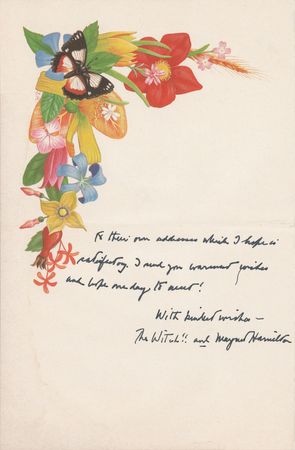 to their own addresses which I hope is
satisfactory. I send you warmest wishes
and hope one day to meet!
With kindest wishes –
The Witch!! and Margaret Hamilton